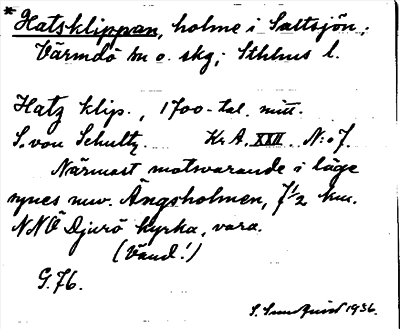 *Hatsklippan, holme i Saltsjön;
Värmdö sn o. skg; Sthlms l.
Hatz klip., 1700-tal. mitt.
S. von Schultz. Kr A. XXII. N:o 7.
Närmast motsvarande i läge
synes nuv. Ängsholmen, 7 1/2 km.
NNÖ Djurö kyrka, vara.
(Vänd!)
G. 76.
S. Sundquist 1936.